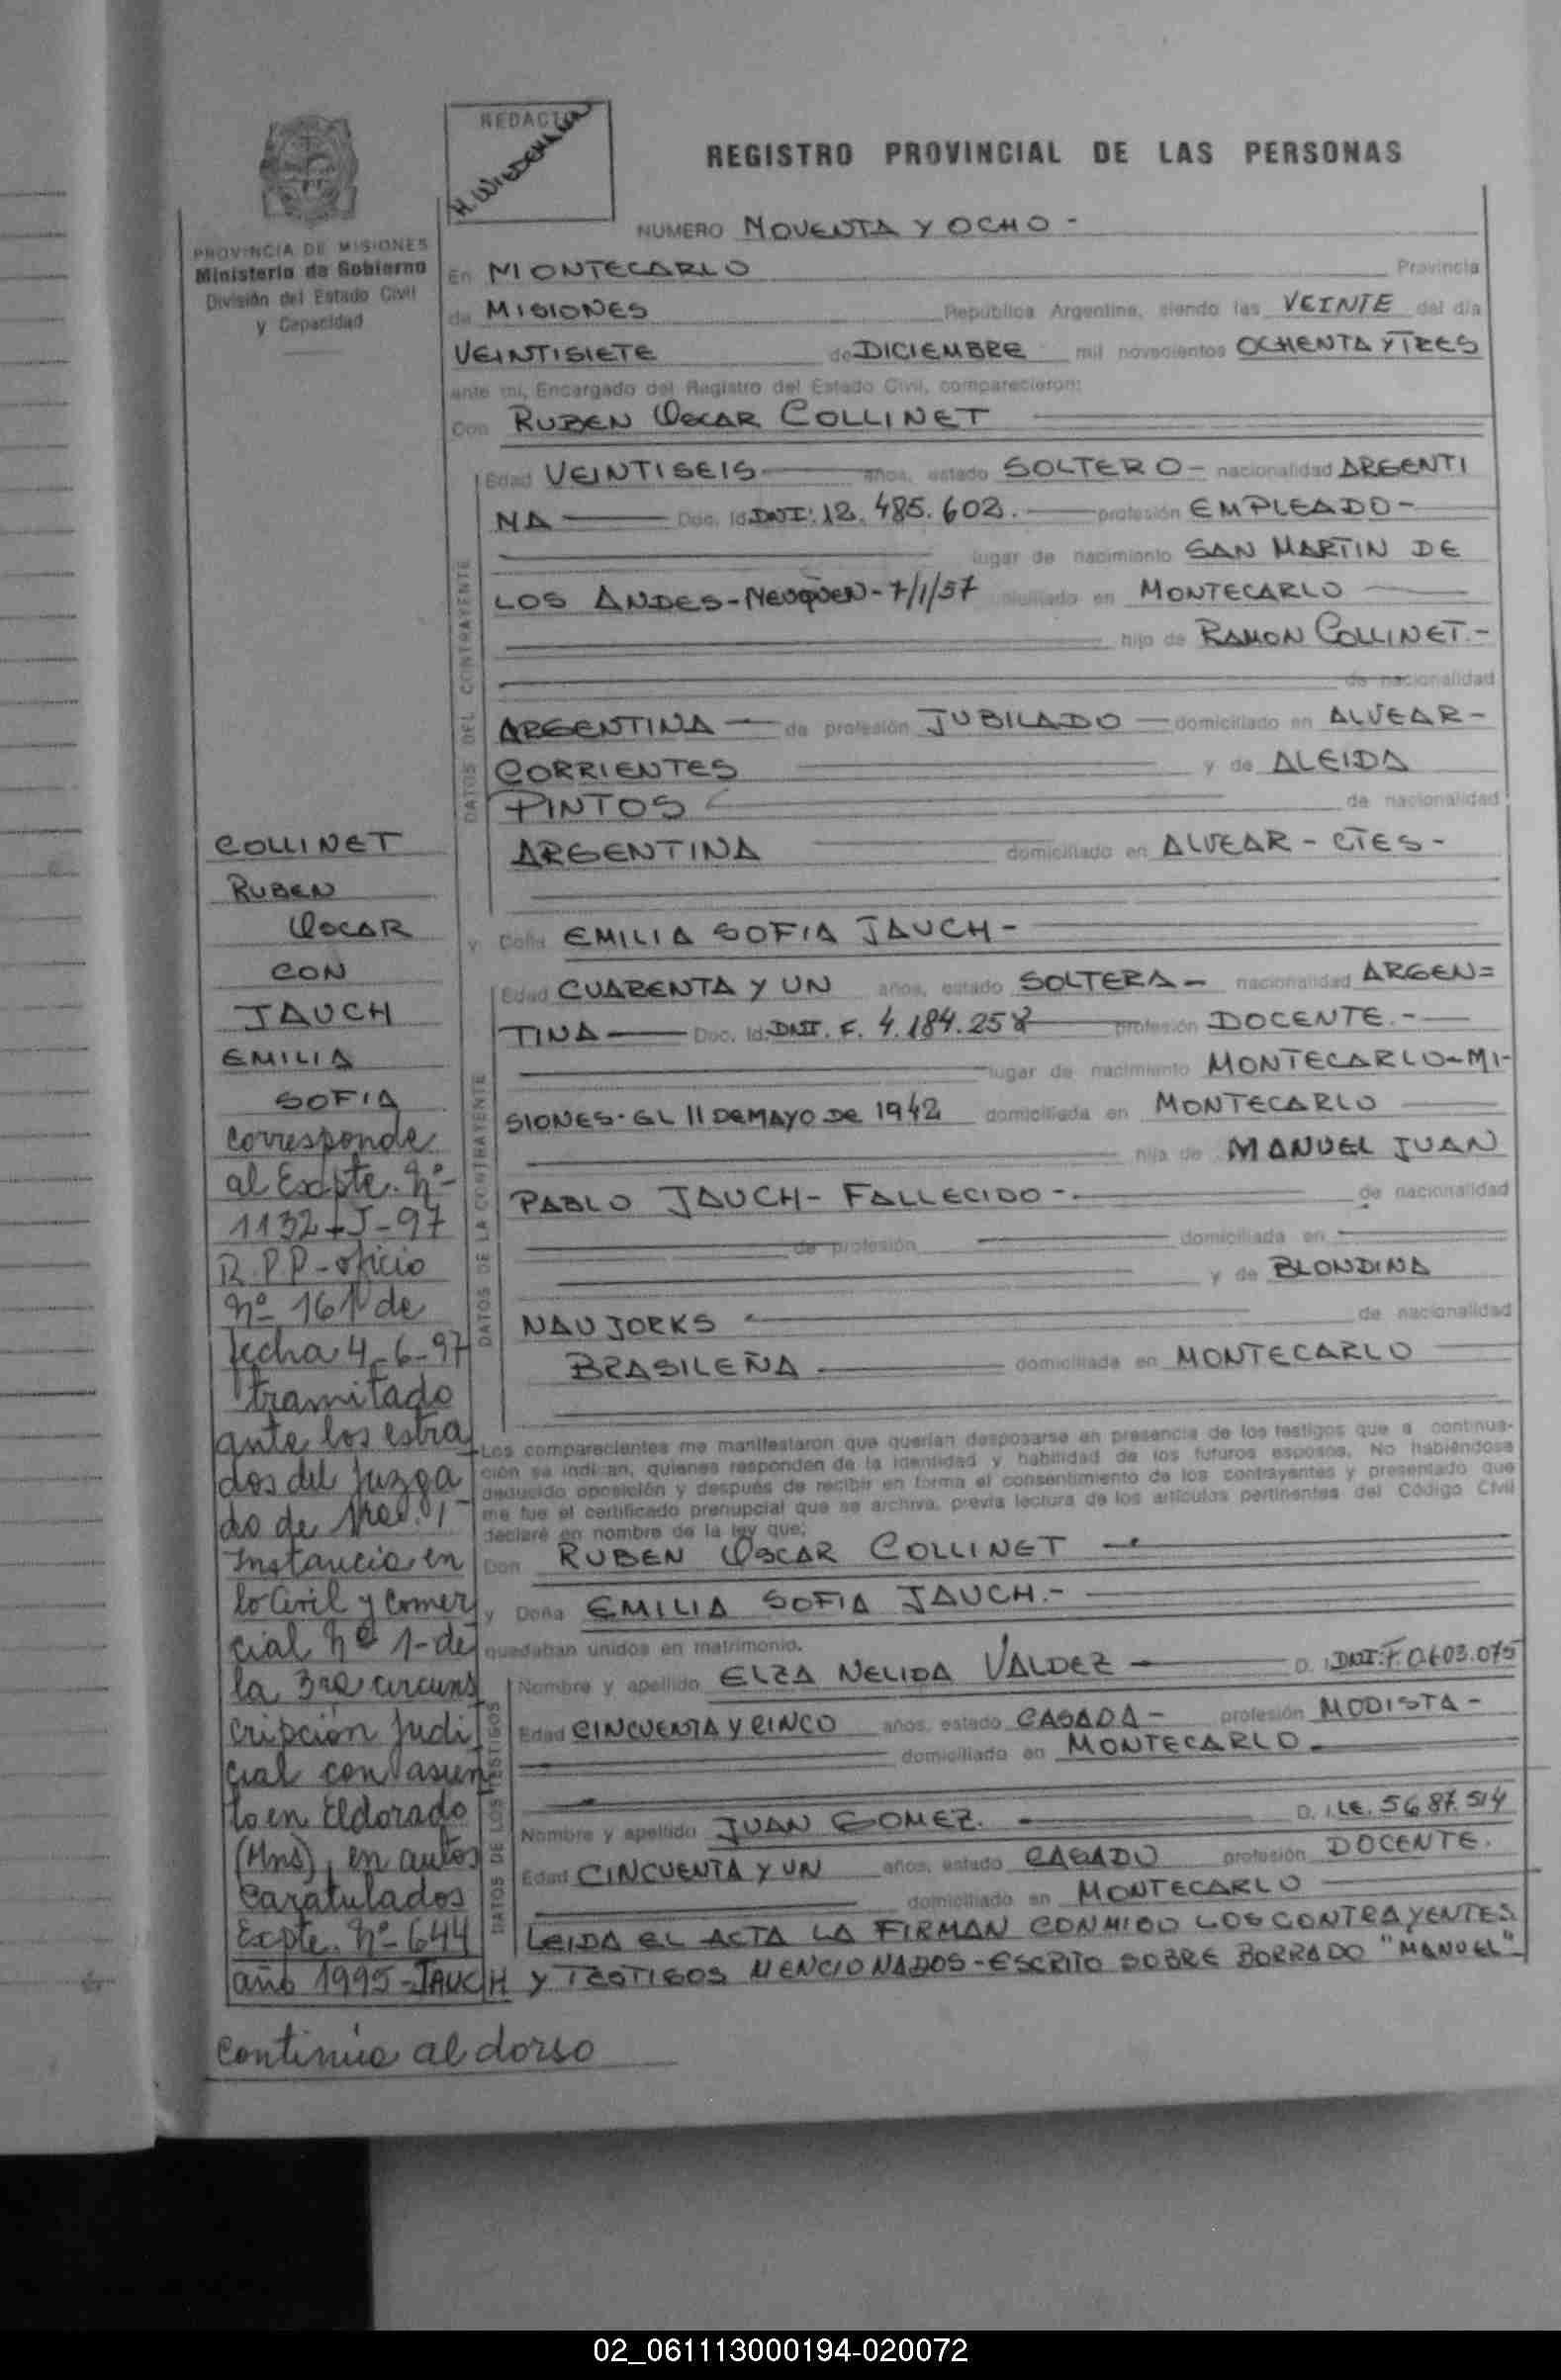 REDACTO
H. WIEDENMANN
REGISTRO PROVINCIAL DE LAS PERSONAS
PROVINCIA DE MISIONES
Ministerio de Gobierno
División del Estado Civil
y Capacidad
NUMERO NOVENTA Y OCHO -
En MONTECARLO Provincia
de MISIONES República Argentina, siendo las VEINTE del día
VEINTISIETE de DICIEMBRE mil novecientos OCHENTA Y TRES
ante mi, Encargado del Registro del Estado Civil, comparecieron:
Don RUBEN OSCAR COLLINET
DATOS DEL CONTRAYENTE
Edad VEINTISEIS años, estado SOLTERO - nacionalidad ARGENTI
NA Doc. Id. DNI: 12.485.602. profesión EMPLEADO -
lugar de nacimiento SAN MARTIN DE
LOS ANDES - NEUQUEN - 7/1/57 domiciliado en MONTECARLO
hijo de RAMON COLLINET. -
de nacionalidad
ARGENTINA de profesión JUBILADO domiciliado en ALVEAR -
CORRIENTES y de ALEIDA
PINTOS de nacionalidad
ARGENTINA domiciliado en ALVEAR - CTES -
y Doña EMILIA SOFIA JAUCH -
DATOS DE LA CONTRAYENTE
Edad CUARENTA Y UN años, estado SOLTERA - nacionalidad ARGEN=
TINA Doc. Id. DNI. F. 4.184.258 profesión DOCENTE. -
lugar de nacimiento MONTECARLO - MI-
SIONES - EL 11 DE MAYO DE 1942 domiciliada en MONTECARLO
hija de MANUEL JUAN
PABLO JAUCH - FALLECIDO -. de nacionalidad
de profesión domiciliada en
y de BLONDINA
NAUJORKS de nacionalidad
BRASILEÑA domiciliada en MONTECARLO
Los comparecientes me manifestaron que querían desposarse en presencia de los testigos que a continua-
ción se indican, quienes responden de la identidad y habilidad de los futuros esposos. No habiéndose
deducido oposición y después de recibir en forma el consentimiento de los contrayentes y presentado que
me fue el certificado prenupcial que se archiva, previa lectura de los artículos pertinentes del Código Civil
declaré en nombre de la ley que:
Don RUBEN OSCAR COLLINET
y Doña EMILIA SOFIA JAUCH. -
quedaban unidos en matrimonio.
DATOS DE LOS TESTIGOS
Nombre y apellido ELZA NELIDA VALDEZ D. I. DNI. F 0.603.075
Edad CINCUENTA Y CINCO años, estado CASADA - profesión MODISTA -
domiciliado en MONTECARLO
Nombre y apellido JUAN GOMEZ. D. I. LE. 5687.514
Edad CINCUENTA Y UN años, estado CASADO profesión DOCENTE.
domiciliado en MONTECARLO
LEIDA EL ACTA LA FIRMAN CONMIGO LOS CONTRAYENTES
Y TESTIGOS MENCIONADOS - ESCRITO SOBRE BORRADO "MANUEL" -
COLLINET
RUBEN
OSCAR
CON
JAUCH
EMILIA
SOFIA
corresponde
al Expte. Nº
1132-J-97
R.P.P - oficio
Nº 161 de
fecha 4-6-97
tramitado
ante los estra
dos del Juzga
do de 1ra.
Instancia en
lo Civil y Comer
cial Nº 1 - de
la 3ra circuns
cripción Judi
cial con asien
to en Eldorado
(Mns), en autos
Caratulados
Expte. Nº 644
año 1995 - JAUCH
continúa al dorso
02_061113000194-020072